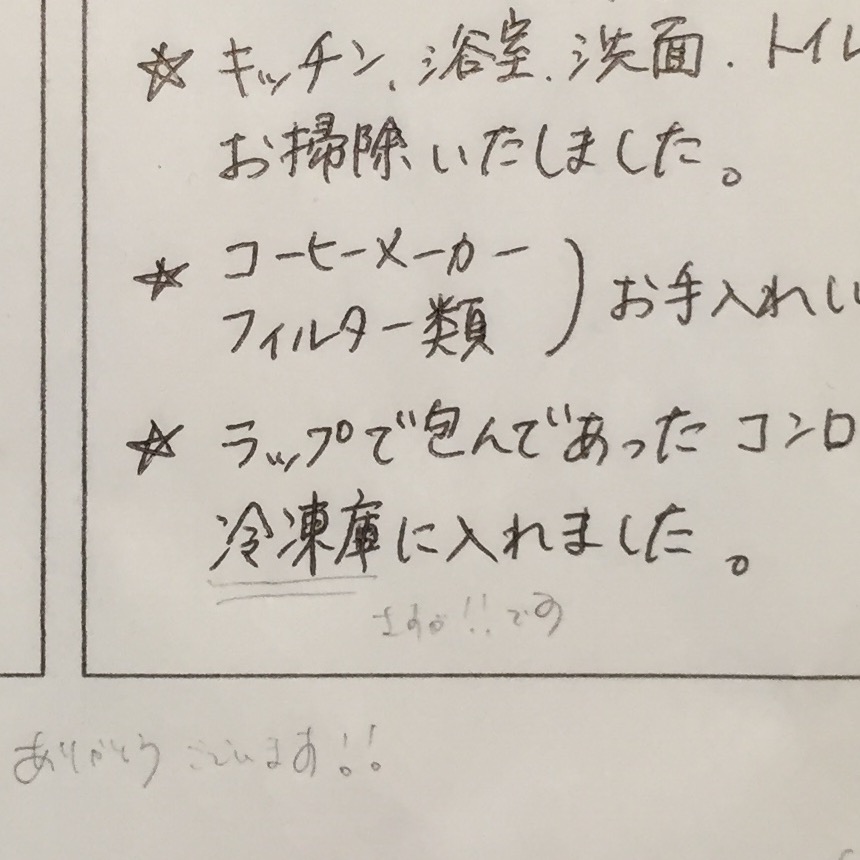 ☆ キッチン、浴室、洗面、トイレ
お掃除いたしました。
☆ コーヒーメーカー
フィルター類 ) お手入れし
☆ ラップで包んであった コンロ
冷凍庫に入れました。
さすが!!です
ありがとうございます!!